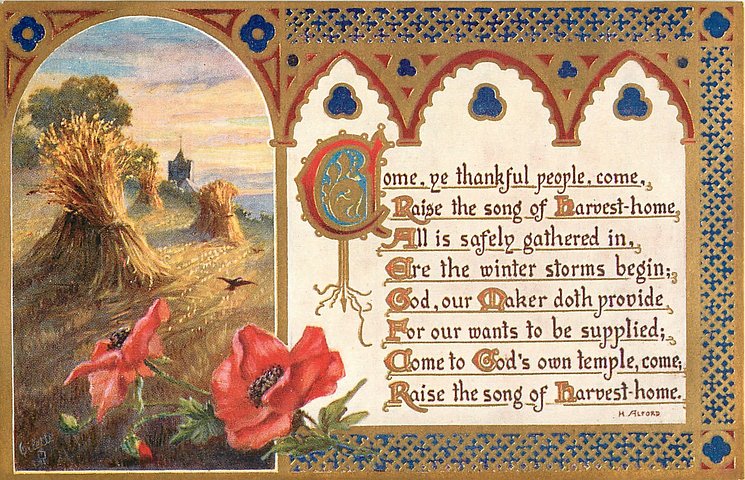 Come, ye thankful people, come,
Raise the song of Harvest-home,
All is safely gathered in,
Ere the winter storms begin;
God, our Maker doth provide
For our wants to be supplied;
Come to God's own temple, come;
Raise the song of Harvest-home.
H. ALFORD.